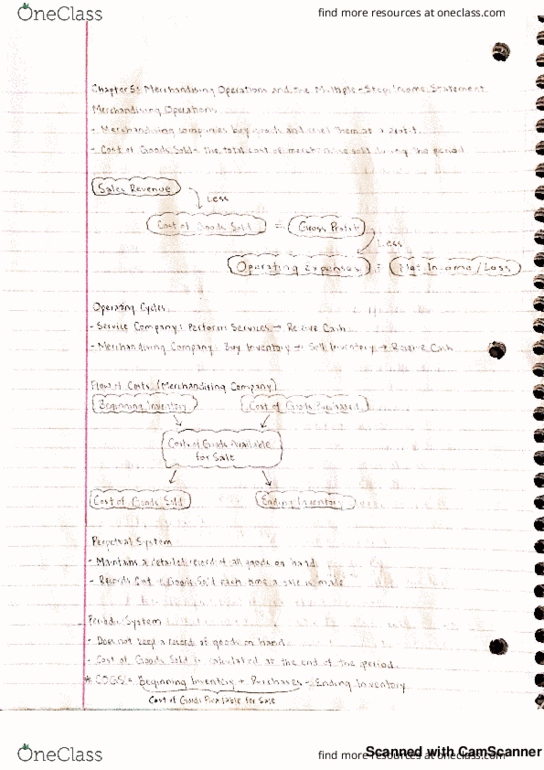 OneClass
find more resources at oneclass.com
Chapter 5: Merchandising Operations and the Multiple-Step Income Statement
Merchandising Operations
- Merchandising companies buy goods and sell them at a profit.
- Cost of Goods Sold - the total cost of merchandise sold during the period
Sales Revenue
Less
Cost of Goods Sold = Gross Profit
Less
Operating Expenses = Net Income/Loss
Operating Cycles
- Service Company: Perform Services → Recive Cash
- Merchandising Company: Buy Inventory → Sell Inventory → Recive Cash
Flow of Costs (Merchandising Company)
Beginning Inventory
Cost of Goods Purchased
Cost of Goods Available
for Sale
Cost of Goods Sold
Ending Inventory
Perpetual System
- Maintains a detailed record of all goods on hand
- Records Cost of Goods Sold each time a sale is made
Periodic System
- Does not keep a record of goods on hand
- Cost of Goods Sold is calculated at the end of the period
* COGS = Beginning Inventory + Purchases - Ending Inventory
Cost of Goods Available for Sale
OneClass
find more resources at oneclass.com
Scanned with CamScanner